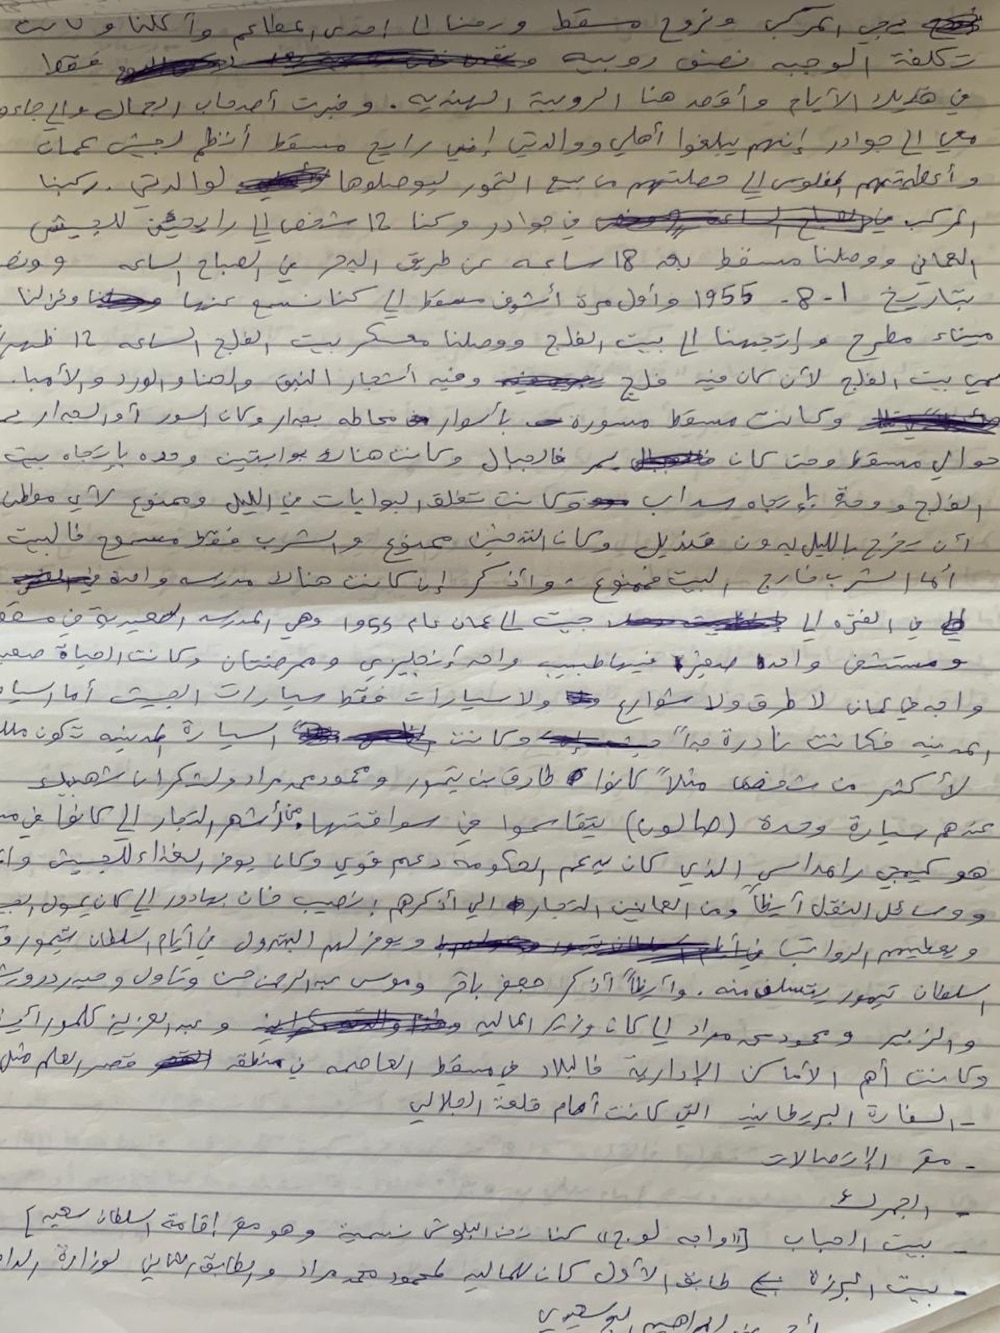 يجي المركب ونروح مسقط ورحنا الى احدى المطاعم وأكلنا وكانت
تكلفة الوجبه نصف روبيه فقط
في هذيلاك الأيام وأقصد هنا الروبية الهنديه. وخبرت أصحاب الجمال والي جاءو
معي الى جوادر إنهم يبلغوا أهلي ووالدتي إني رايح مسقط أنظم لجيش عمان
وأعطيتهم الفلوس الي حصلتهم من بيع التمور ليوصلوها لوالدتي. ركبنا
المركب في جوادر وكنا 12 شخص الي رايحين للجيش
العماني ووصلنا مسقط بعد 18 ساعه عن طريق البحر في الصباح الساعه
بتاريخ 1-8-1955 وأول مرة أشوف مسقط الي كنا نسمع عنها ونزلنا
ميناء مطرح وإتجهنا الى بيت الفلج ووصلنا معسكر بيت الفلج الساعه 12 ظهراً
سمي بيت الفلج لأن كان فيه فلج وفيه أشجار النبق والحنا والورد والأمبا.
وكانت مسقط مسورة بأسوار محاطه بجدار وكان السور أو الجدار
حوالي مسقط وحتى كان يمر فالجبال وكانت هناك بوابتين وحده بإتجاه بيت
الفلج ووحدة بإتجاه سداب وكانت تغلق البوابات في الليل وممنوع لأي مواطن
أن يخرج بالليل بدون قنديل وكان التدخين ممنوع والشرب فقط مسموح فالبيت
أما الشرب خارج البيت فممنوع. وأذكر إن كانت هناك مدرسه واحدة
في الفتره الي جيت الى عمان عام 1955 وهي المدرسه السعيدية في مسقط
ومستشفى واحد صغير فيها طبيب واحد إنجليزي وممرضتان وكانت الحياة صعبه
واجد في عمان لا طرق ولا شوارع ولا سيارات فقط سيارات الجيش أما السيارات
المدنيه فكانت نادرة جداً وكانت السيارة المدنيه تكون ملك
لأكثر من شخص مثلاً كانوا طارق بن تيمور ومحمود محمد مراد
عندهم سيارة وحده (صالون) يتقاسموا في سواقتها، أشهر التجار الي كانوا في
هو كيمجي رامداس الذي كان يدعم الحكومه دعم قوي وكان يوفر الغذاء للجيش
ووسائل النقل أيضاً ومن العمانين التجار الي أذكرهم نصيب خان بهادور الي كان يمول
ويعطيهم الرواتب ويوفر لهم البترول في أيام السلطان تيمور
السلطان تيمور يتسلف منه. وأيضاً أذكر جعفر باقر وموسى عبدالرحمن حسن
والزبير ومحمود محمد مراد الي كان وزير الماليه وعبدالعزيز
وكانت أهم الأماكن الإدارية فالبلاد في مسقط العاصمه في منطقه قصر العلم مثل
- السفارة البريطانيه التي كانت أمام قلعة الجلالي
- مقر الإتصالات
- الجمرك
- بيت الحباب كنا نحن البلوش نسميه وهو مقر إقامة السلطان سعيد]
- بيت البرزة طابق الأول كان للماليه لمحمود محمد مراد والطابق الثاني لوزارة
أحمد بن إبراهيم البوسعيدي